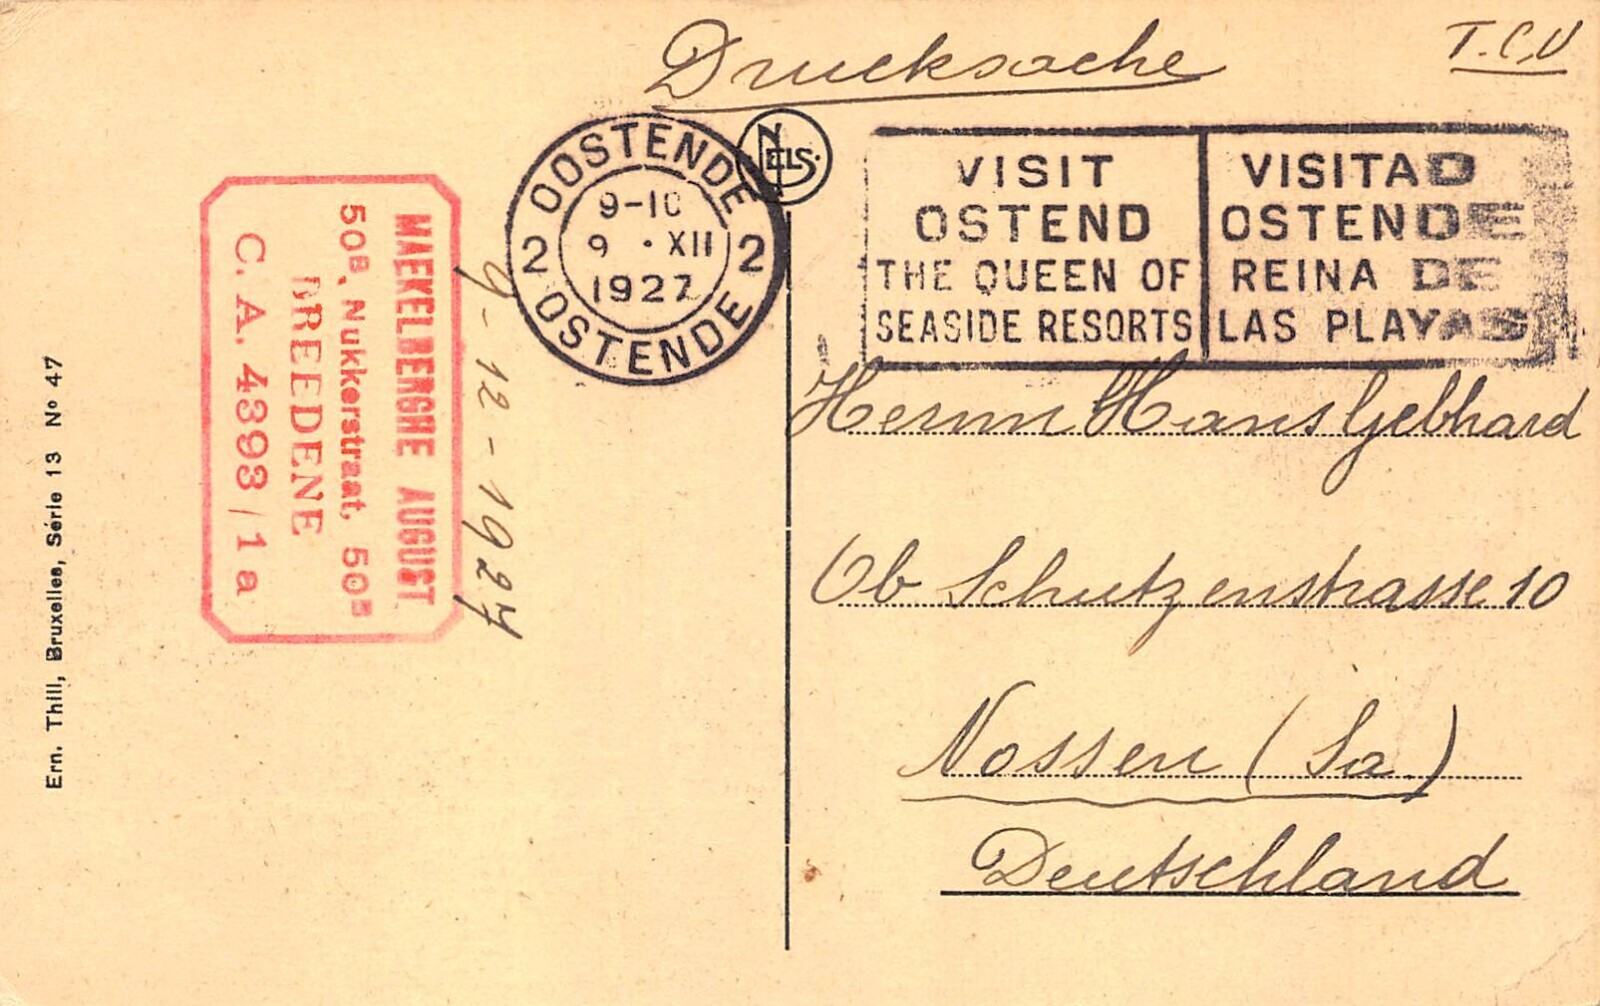 Drucksache
T.C.V
OOSTENDE
9-10
9 · XII
1927
2 2
OSTENDE
NELS.
VISIT
OSTEND
THE QUEEN OF
SEASIDE RESORTS
VISITAD
OSTENDE
REINA DE
LAS PLAYAS
MAEKELBERGHE AUGUST
50B, Nukkerstraat, 50B
BREEDENE
C. A. 4393/1a
9-12-1927
Herrn Hans Gebhard
Ob Schutzenstrasse 10
Nossen (Sa.)
Deutschland
Ern. Thill, Bruxelles, Série 13 No 47